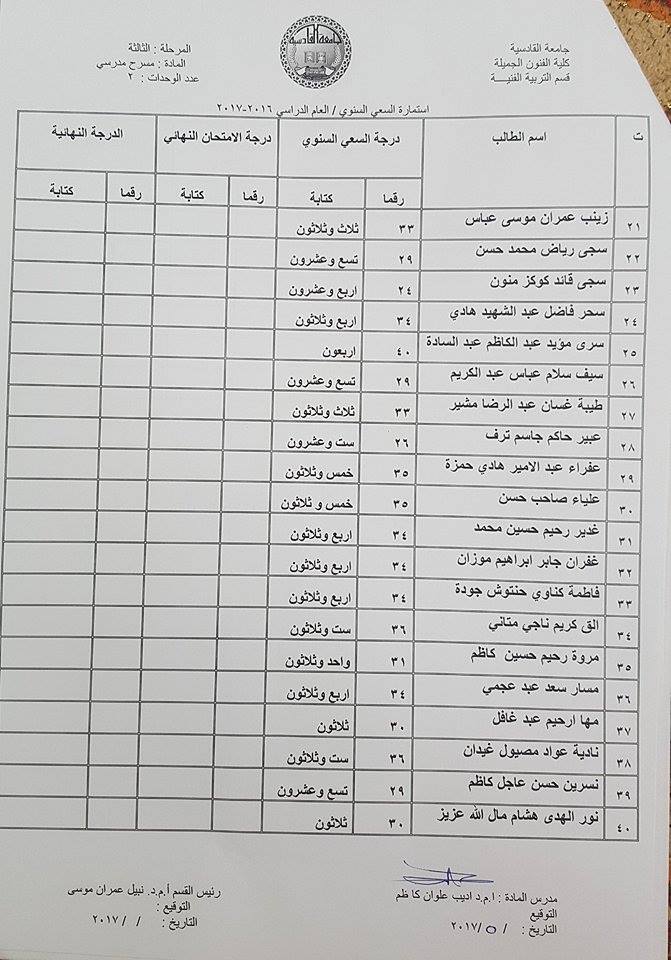 جامعة القادسية
كلية الفنون الجميلة
قسم التربية الفنيـــة
المرحلة : الثالثة
المادة : مسرح مدرسي
عدد الوحدات : ٢
جامعة القادسية
استمارة السعي السنوي / العام الدراسي ٢٠١٦-٢٠١٧
ت اسم الطالب درجة السعي السنوي درجة الامتحان النهائي الدرجة النهائية
رقما كتابة رقما كتابة رقما كتابة
٢١ زينب عمران موسى عباس ٣٣ ثلاث وثلاثون
٢٢ سجى رياض محمد حسن ٢٩ تسع وعشرون
٢٣ سجى قائد كوكز منون ٢٤ اربع وعشرون
٢٤ سحر فاضل عبد الشهيد هادي ٣٤ اربع وثلاثون
٢٥ سرى مؤيد عبد الكاظم عبد السادة ٤٠ اربعون
٢٦ سيف سلام عباس عبد الكريم ٢٩ تسع وعشرون
٢٧ طيبة غسان عبد الرضا مشير ٣٣ ثلاث وثلاثون
٢٨ عبير حاكم جاسم ترف ٢٦ ست وعشرون
٢٩ عفراء عبد الامير هادي حمزة ٣٥ خمس وثلاثون
٣٠ علياء صاحب حسن ٣٥ خمس و ثلاثون
٣١ غدير رحيم حسين محمد ٣٤ اربع وثلاثون
٣٢ غفران جابر ابراهيم موزان ٣٤ اربع وثلاثون
٣٣ فاطمة كناوي حنتوش جودة ٣٤ اربع وثلاثون
٣٤ الق كريم ناجي متاني ٣٦ ست وثلاثون
٣٥ مروة رحيم حسين كاظم ٣١ واحد وثلاثون
٣٦ مسار سعد عبد عجمي ٣٤ اربع وثلاثون
٣٧ مها ارحيم عبد غافل ٣٠ ثلاثون
٣٨ نادية عواد مصيول غيدان ٣٦ ست وثلاثون
٣٩ نسرين حسن عاجل كاظم ٢٩ تسع وعشرون
٤٠ نور الهدى هشام مال الله عزيز ٣٠ ثلاثون
مدرس المادة : ا.م.د اديب علوان كا ظم
التوقيع
التاريخ : / ٥/ ٢٠١٧
رئيس القسم أ.م.د. نبيل عمران موسى
التوقيع :
التاريخ : / / ٢٠١٧